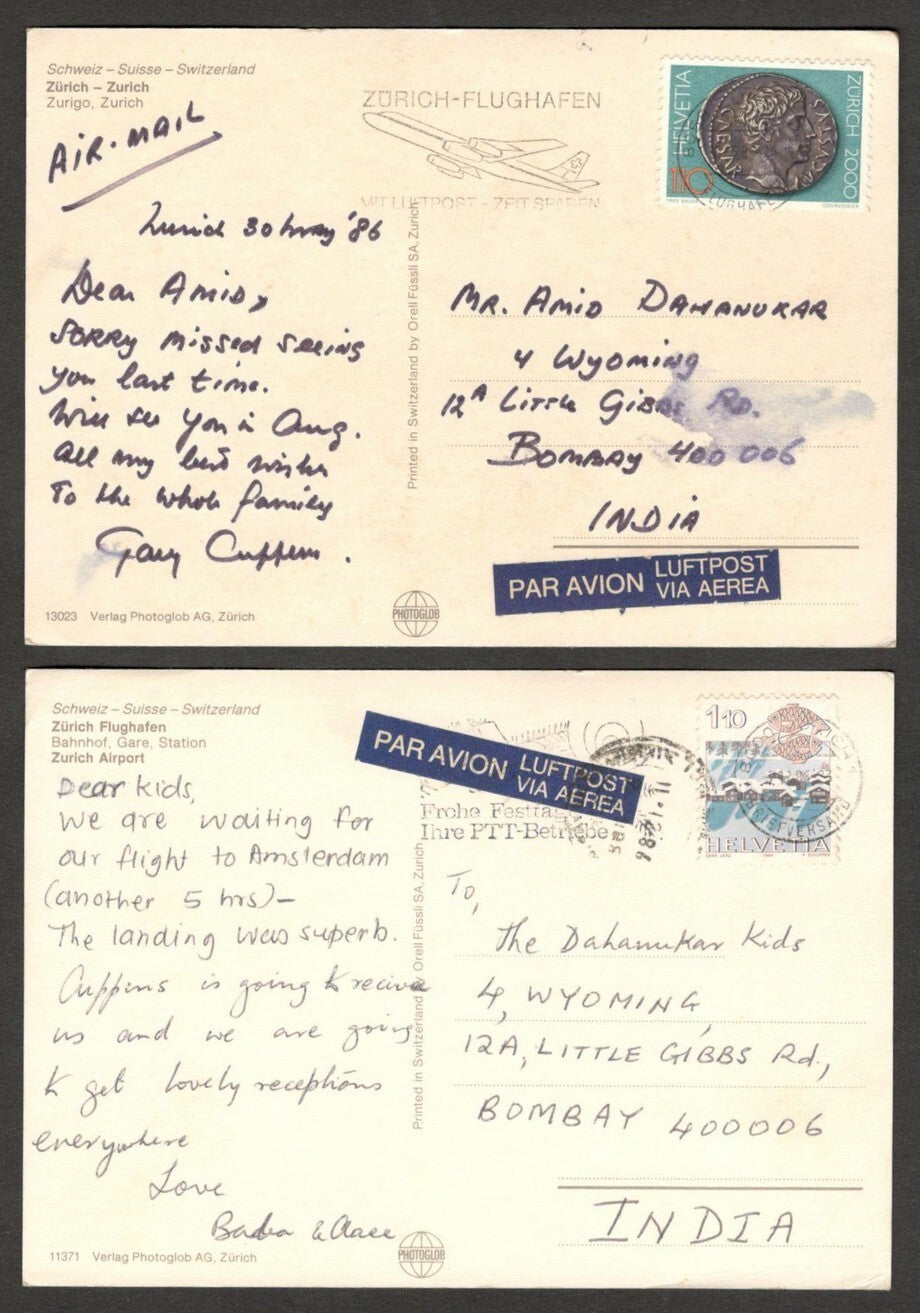 Schweiz – Suisse – Switzerland
Zürich – Zurich
Zurigo, Zurich
AIR-MAIL
ZÜRICH-FLUGHAFEN
MIT LUFTPOST - ZEIT SPAREN
HELVETIA
110
CAESAR
AVGVSTVS
ZÜRICH 2000
FRED BAUER
COURVOISIER
FLUGHAFEN
Zurich 30 May '86
Dear Amid,
Sorry missed seeing
you last time.
Will see you in Aug.
All my best wishes
To the whole family
Gary Cuppens.
Printed in Switzerland by Orell Füssli SA, Zurich
MR. AMID DAHANUKAR
4 WYOMING
12A LITTLE GIBBS RD.
BOMBAY 400 006
INDIA
PAR AVION LUFTPOST
VIA AEREA
13023 Verlag Photoglob AG, Zürich
PHOTOGLOB
Schweiz – Suisse – Switzerland
Zürich Flughafen
Bahnhof, Gare, Station
Zurich Airport
PAR AVION LUFTPOST
VIA AEREA
Frohe Festtage
Ihre PTT-Betriebe
110
BRIEFVERSAND
HELVETIA
Dear kids,
We are waiting for
our flight to Amsterdam
(another 5 hrs) –
The landing was superb.
Cuppens is going to recive
us and we are going
to get lovely receptions
everywhere
Love
Printed in Switzerland by Orell Füssli SA, Zurich
To,
The Dahanukar Kids
4, WYOMING,
12A, LITTLE GIBBS Rd.,
BOMBAY 400006
INDIA
11371 Verlag Photoglob AG, Zürich
PHOTOGLOB